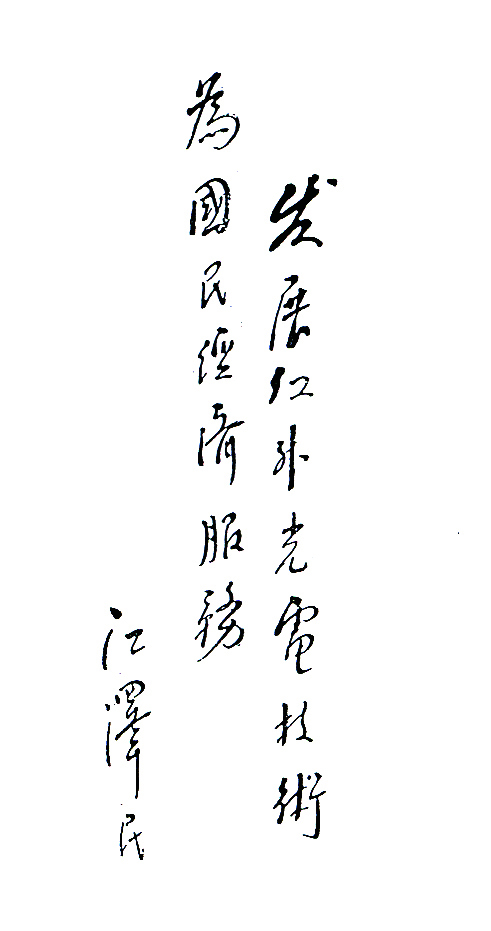 发展红外光電技術
為國民經濟服務
江澤民